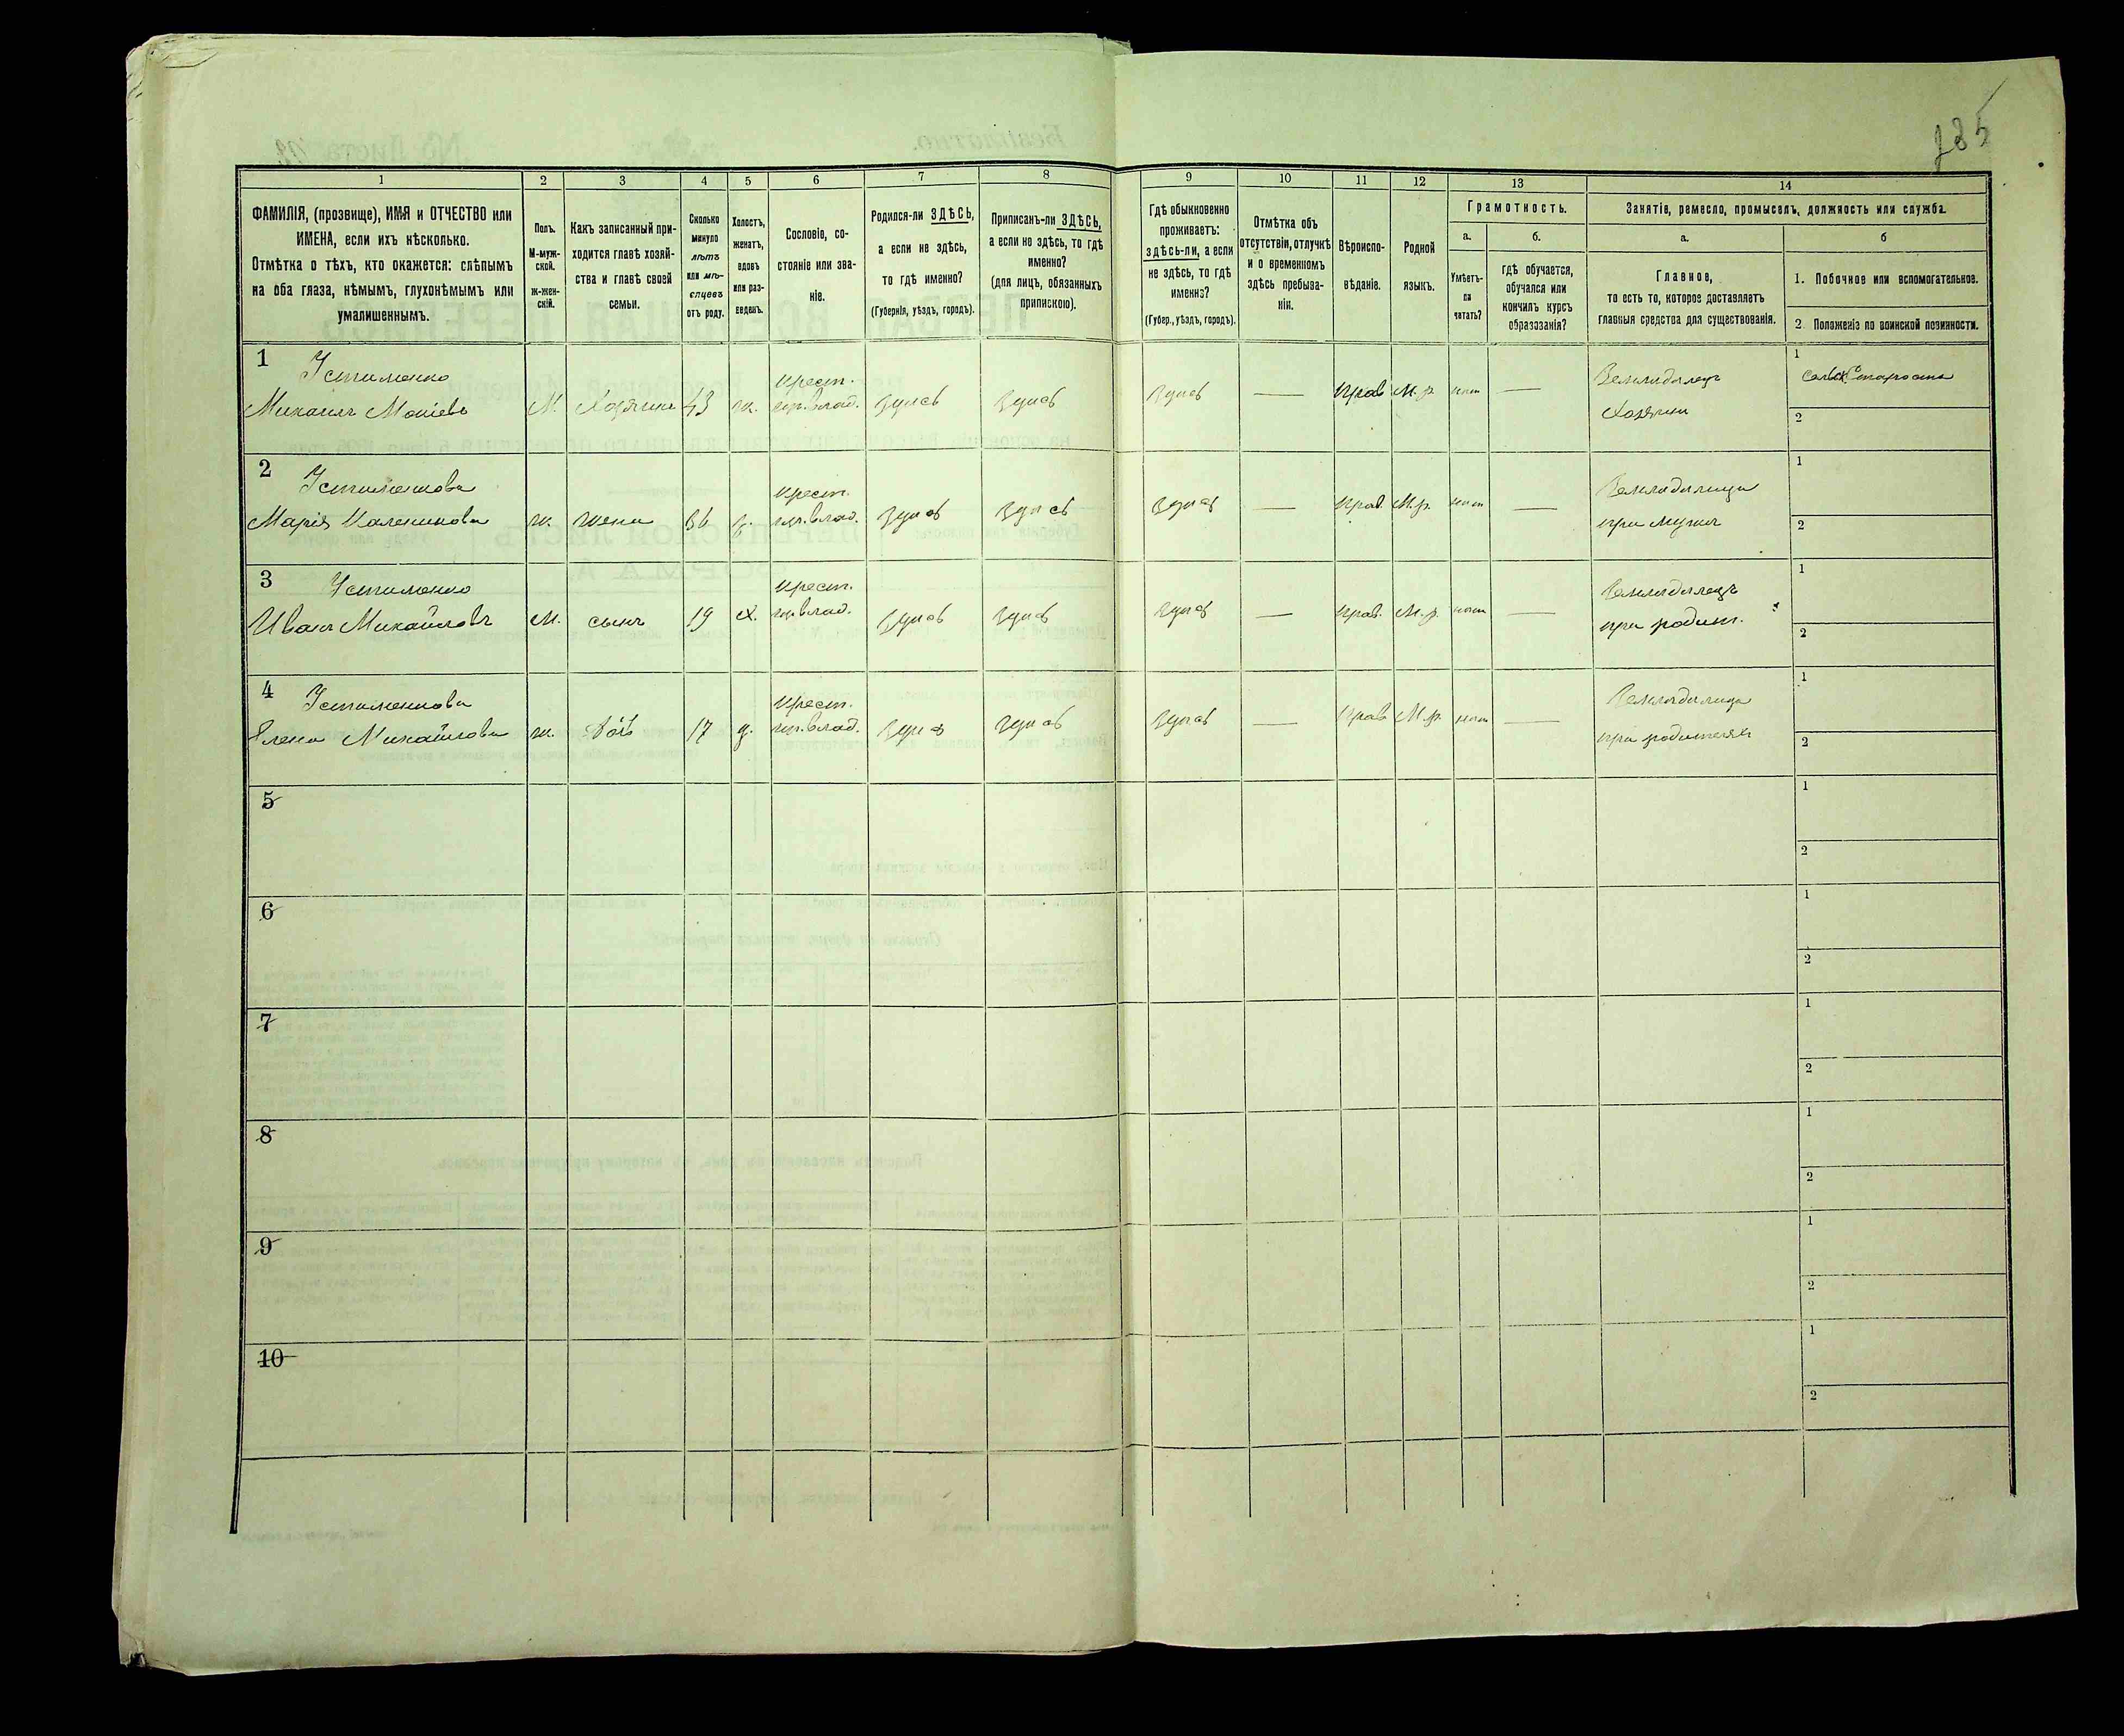 135
1 2 3 4 5 6 7 8 9 10 11 12 13 14
ФАМИЛІЯ, (прозвище), ИМЯ и ОТЧЕСТВО или
ИМЕНА, если ихъ нѣсколько.
Отмѣтка о тѣхъ, кто окажется: слѣпымъ
на оба глаза, нѣмымъ, глухонѣмымъ или
умалишеннымъ.
Полъ.
М-муж-
ской.
ж-жен-
скій.
Какъ записанный при-
ходится главѣ хозяй-
ства и главѣ своей
семьи.
Сколько
минуло
лѣтъ
или мѣ-
сяцевъ
отъ роду.
Холостъ,
женатъ,
вдовъ
или раз-
веденъ.
Сословіе, со-
стояніе или зва-
ніе.
Родился-ли ЗДѢСЬ,
а если не здѣсь,
то гдѣ именно?
(Губернія, уѣздъ, городъ).
Приписанъ-ли ЗДѢСЬ,
а если не здѣсь, то гдѣ
именно?
(для лицъ, обязанныхъ
припискою).
Гдѣ обыкновенно
проживаетъ:
здѣсь-ли, а если
не здѣсь, то гдѣ
именно?
(Губер., уѣздъ, городъ).
Отмѣтка объ
отсутствіи, отлучкѣ
и о временномъ
здѣсь пребыва-
ніи.
Вѣроиспо-
вѣданіе.
Родной
языкъ.
Грамотность.
а. б.
Умѣетъ-
ли
читать?
гдѣ обучается,
обучался или
кончилъ курсъ
образованія?
Занятіе, ремесло, промыселъ, должность или служба.
а. б
Главное,
то есть то, которое доставляетъ
главныя средства для существованія.
1. Побочное или вспомогательное.
2. Положеніе по воинской повинности.
1 Устименко крест. Земледѣлецъ 1 Сельск. Староста
Михаилъ М. Хозяинъ 43 ж. гр. влад. Здѣсь Здѣсь Здѣсь — Прав М. р. нѣт — Хозяинъ 2
2 Устименкова крест. Земледѣлица 1
Марія Калениковa ж. жена 36 з. гр. влад. Здѣсь Здѣсь Здѣсь — Прав. М. р. нѣт — при мужѣ 2
3 Устименко крест. Земледѣлецъ 1
Иванъ Михайловъ М. сынъ 19 х. гр. влад. Здѣсь Здѣсь Здѣсь — Прав. М. р. нѣт — при родит. 2
4 Устименкова крест. Земледѣлица 1
Елена Михайлова ж. дочь 17 д. гр. влад. Здѣсь Здѣсь Здѣсь — Прав М. р. нѣт — при родителях 2
5 1
2
6 1
2
7 1
2
8 1
2
9 1
2
10 1
2